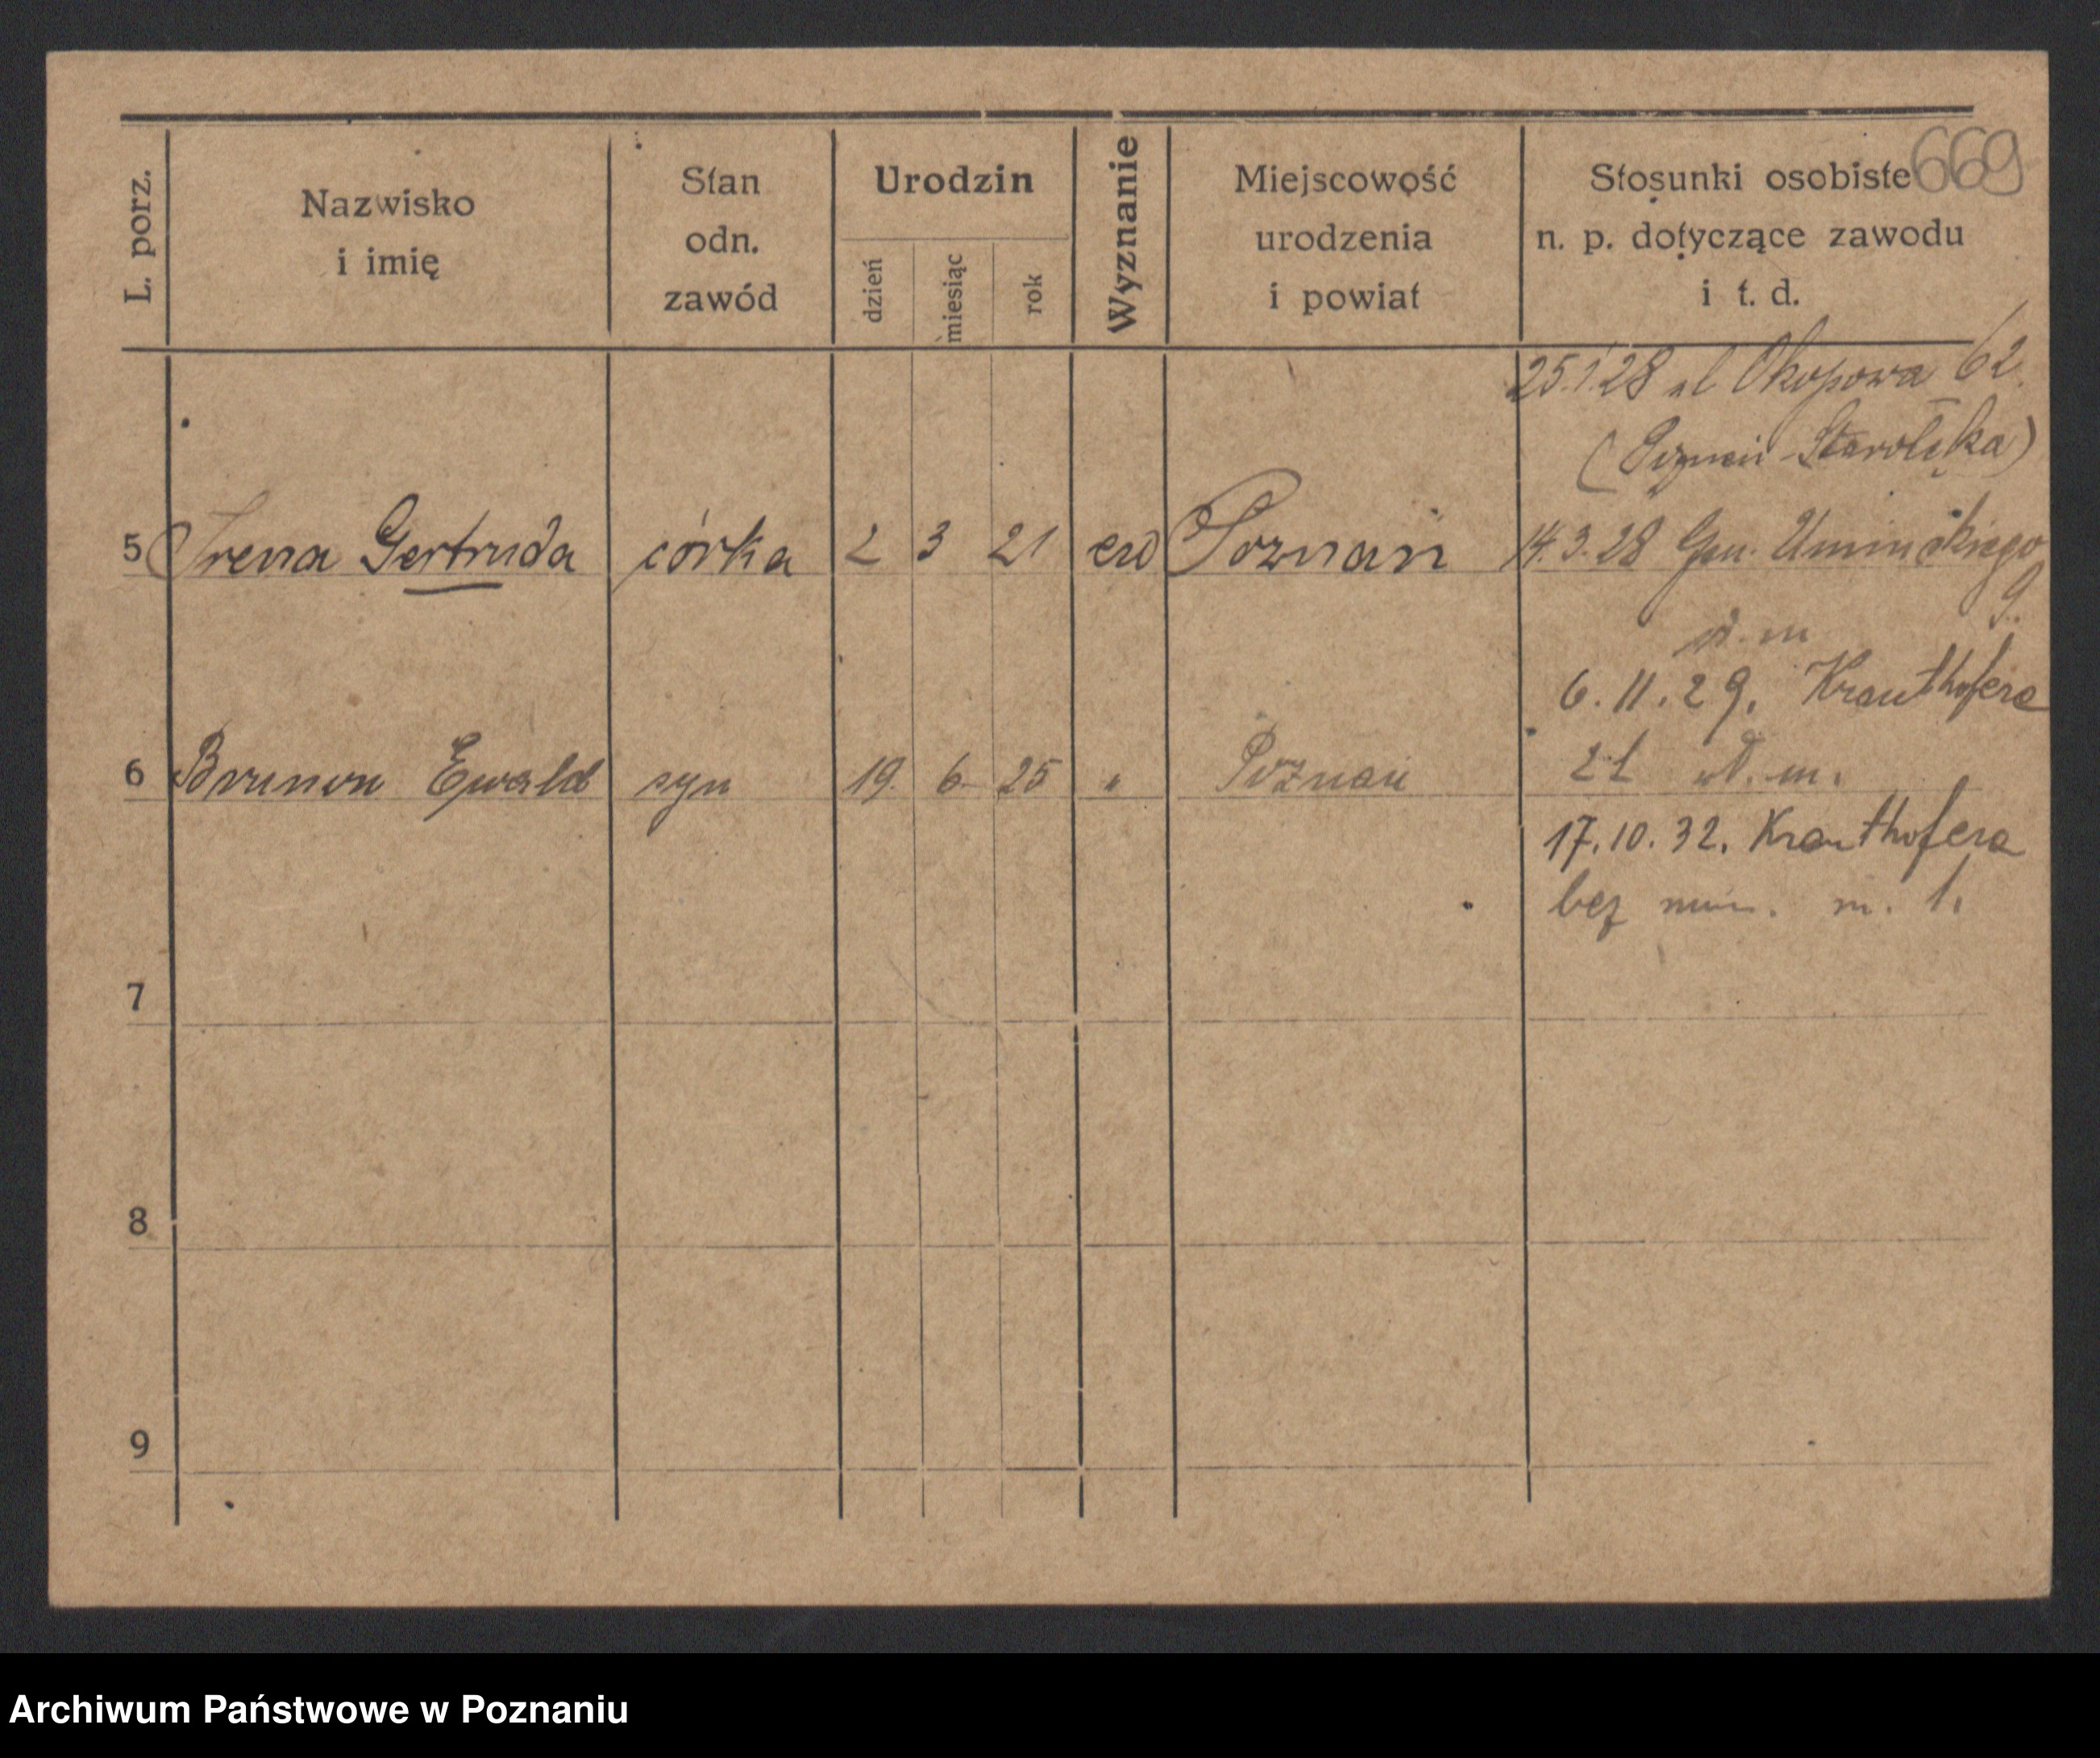 669
L. porz.
Nazwisko
i imię
Stan
odn.
zawód
Urodzin
dzień
miesiąc
rok
Wyznanie
Miejscowość
urodzenia
i powiat
Stosunki osobiste
n. p. dotyczące zawodu
i t. d.
25.1.28 ul Okopowa 62.
(Poznań-Starołęka)
5 Irena Gertruda córka 2 3 21 ew Poznań 14.3.28 Gen. Umińskiego
9.
6.11.29. Krauthofera
6 Brunon Ewald syn 19. 6 25 " Poznań 21 m.
17.10.32. Krauthofera
bez num. m. 1.
7
8
9
Archiwum Państwowe w Poznaniu